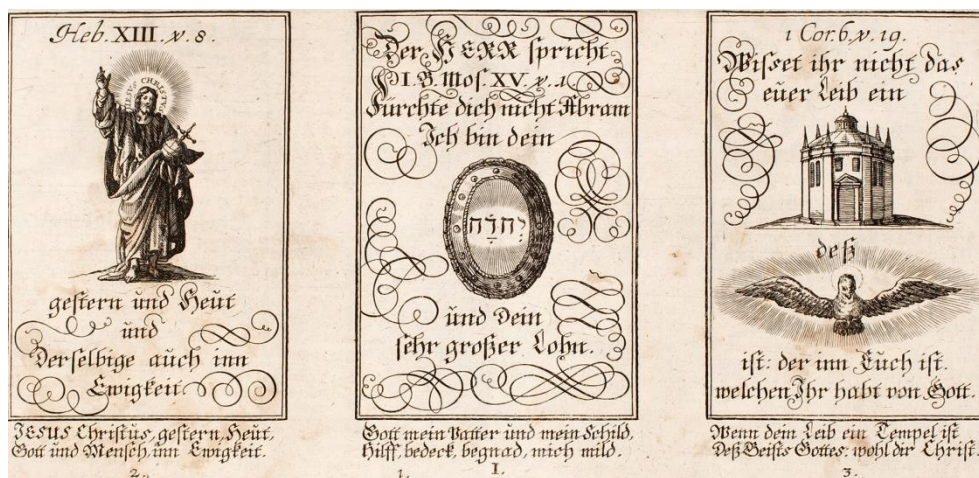 Heb. XIII. v. 8.
JESUS CHRISTUS
gestern und Heut
und
Derselbige auch inn
Ewigkeit.
JESUS Christus, gestern, Heut,
Gott und Mensch, inn Ewigkeit.
2.
Der HERR spricht
I. B. Mos. XV. v. 1.
Fürchte dich nicht Abram
Ich bin dein
יהוה
und Dein
sehr großer Lohn.
Gott mein Vatter und mein Schild,
Hilff, bedeck, begnad, mich mild.
1. I.
1 Cor. 6. v. 19.
Wisset ihr nicht das
euer Leib ein
deß
ist: der inn Euch ist.
welchen Ihr habt von Gott.
Wenn dein Leib ein Tempel ist
Deß Geists Gottes: wohl dir Christ.
3.